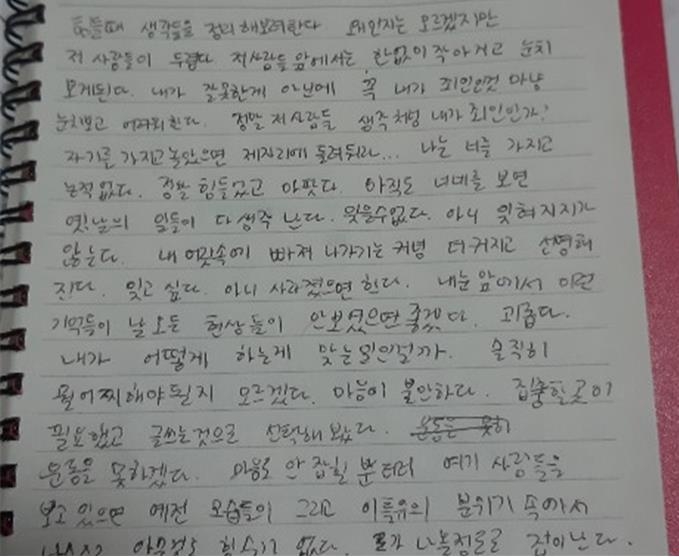 힘들때 생각들을 정리해보려한다 왜인지는 모르겠지만
저 사람들이 두렵다. 저사람들 앞에서는 한없이 작아지고 눈치
보게된다. 내가 잘못한게 아닌데 꼭 내가 죄인인것 마냥
눈치보고 어려워한다. 정말 저사람들 생각처럼 내가 죄인인가?
자기를 가지고 놀았으면 제자리에 돌려둬라... 나는 너를 가지고
논적없다. 정말 힘들었고 아팠다. 아직도 너네를 보면
옛날의 일들이 다 생각 난다. 잊을수없다. 아니 잊혀지지가
않는다. 내 머릿속에 빠져 나가기는 커녕 더커지고 선명해
진다. 잊고 싶다. 아니 사라졌으면 한다. 내눈 앞에서 이런
기억들이 날 모든 현상들이 안보였으면 좋겠다. 괴롭다.
내가 어떻게 하는게 맞는일인걸까. 솔직히
뭘어찌해야될지 모르겠다. 마음이 불안하다. 집중할곳이
필요했고 글쓰는것으로 선택해봤다. 운동은 못하
운동을 못하겠다. 마음도 안 잡힐 뿐더러 여기 사람들을
보고 있으면 예전 모습들이 그리고 이특유의 분위기 속에서
아무것도 할수가 없다. 나올정도로 겁이난다.